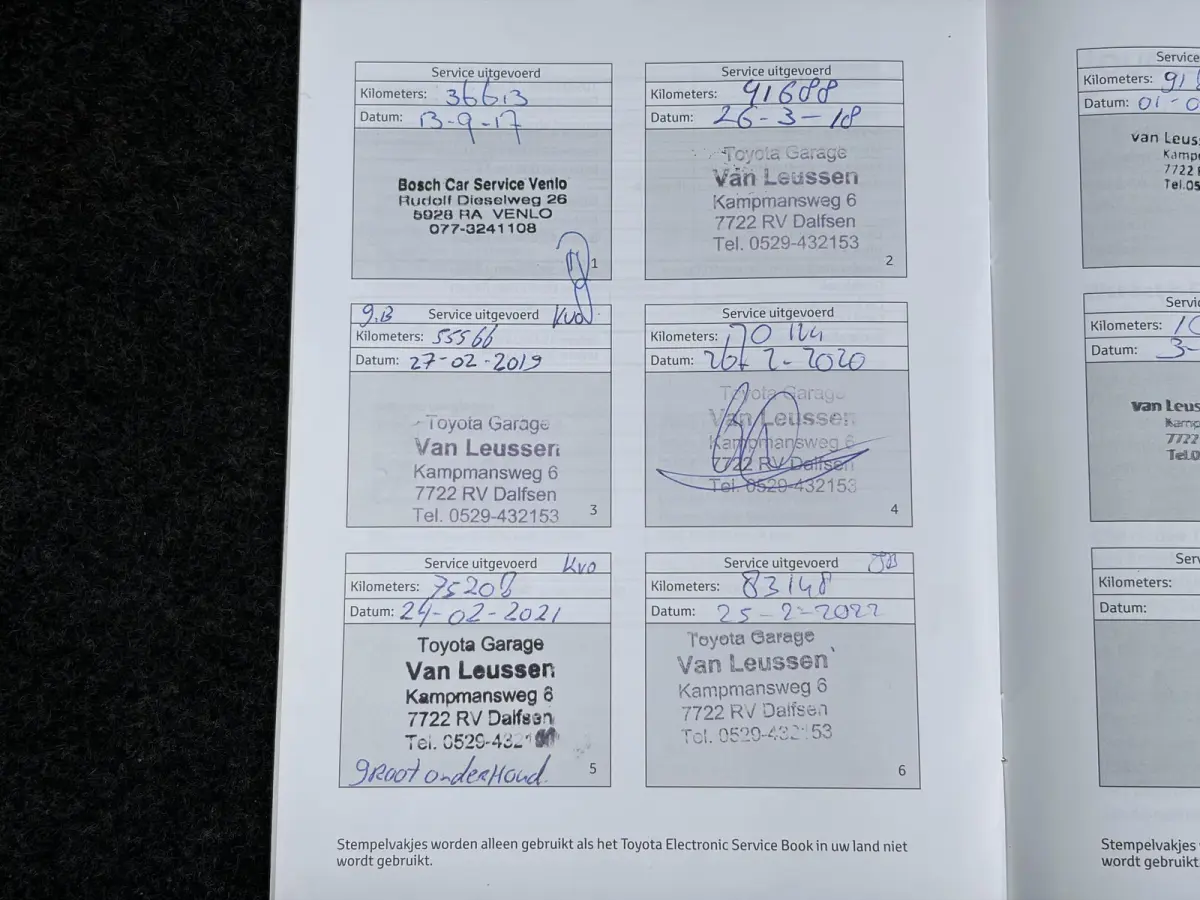 Service uitgevoerd
Kilometers: 36613
Datum: 13-9-17
Bosch Car Service Venlo
Rudolf Dieselweg 26
5928 RA VENLO
077-3241108
1
Service uitgevoerd
Kilometers: 41688
Datum: 26-3-18
Toyota Garage
Van Leussen
Kampmansweg 6
7722 RV Dalfsen
Tel. 0529-432153
2
9.B Service uitgevoerd Kvo
Kilometers: 55566
Datum: 27-02-2019
Toyota Garage
Van Leussen
Kampmansweg 6
7722 RV Dalfsen
Tel. 0529-432153
3
Service uitgevoerd
Kilometers: 70124
Datum: 26-2-2020
Toyota Garage
Van Leussen
Kampmansweg 6
7722 RV Dalfsen
Tel. 0529-432153
4
Service uitgevoerd Kvo
Kilometers: 75208
Datum: 24-02-2021
Toyota Garage
Van Leussen
Kampmansweg 6
7722 RV Dalfsen
Tel. 0529-432
groot onderHoud
5
Service uitgevoerd JB
Kilometers: 83148
Datum: 25-2-2022
Toyota Garage
Van Leussen
Kampmansweg 6
7722 RV Dalfsen
Tel. 0529-432153
6
Stempelvakjes worden alleen gebruikt als het Toyota Electronic Service Book in uw land niet
wordt gebruikt.
Service
Kilometers: 91
Datum: 01-0
van Leus
Kamp
7722
Tel.05
Servi
Kilometers: 10
Datum: 3-
van Leus
Kamp
7722
Tel.0
Serv
Kilometers:
Datum:
Stempelvakjes
wordt gebruikt